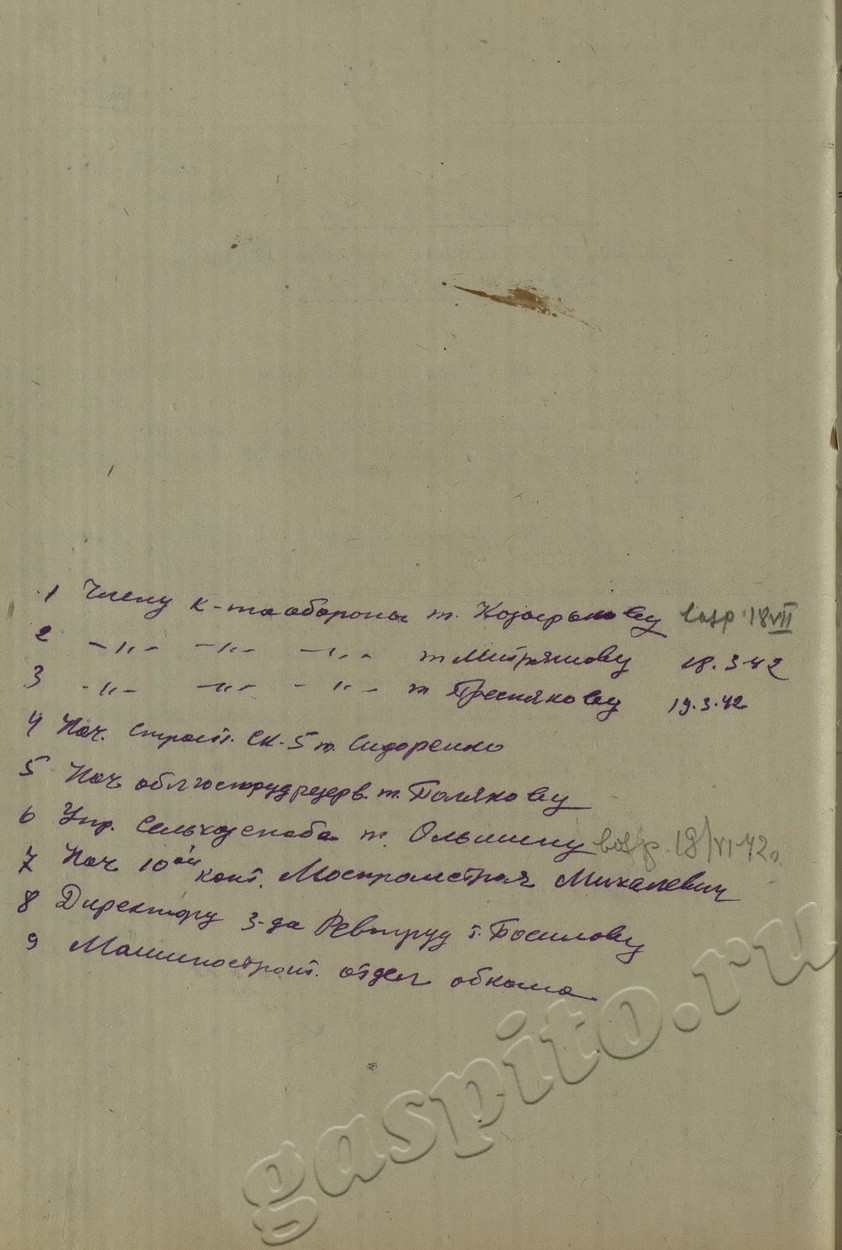 1 Члену к-та обороны т. Козырькову возр. 18 VII
2 -"- -"- -"- т Митряшову 18.3-42
3 -"- -"- -"- т Преснякову 19.3.42
4 Нач. Строит. СК-5 т. Сидоренко
5 Нач облгострудрезерв. т. Полякову
6 Упр. Сельхозснаба т. Ольшину возр. 18/VI-42г.
7 Нач 10ой конт. Моспромстрой Михалевич
8 Директору з-да Ревтруд т.
9 Машиностроит. отдел обкома
gaspito.ru